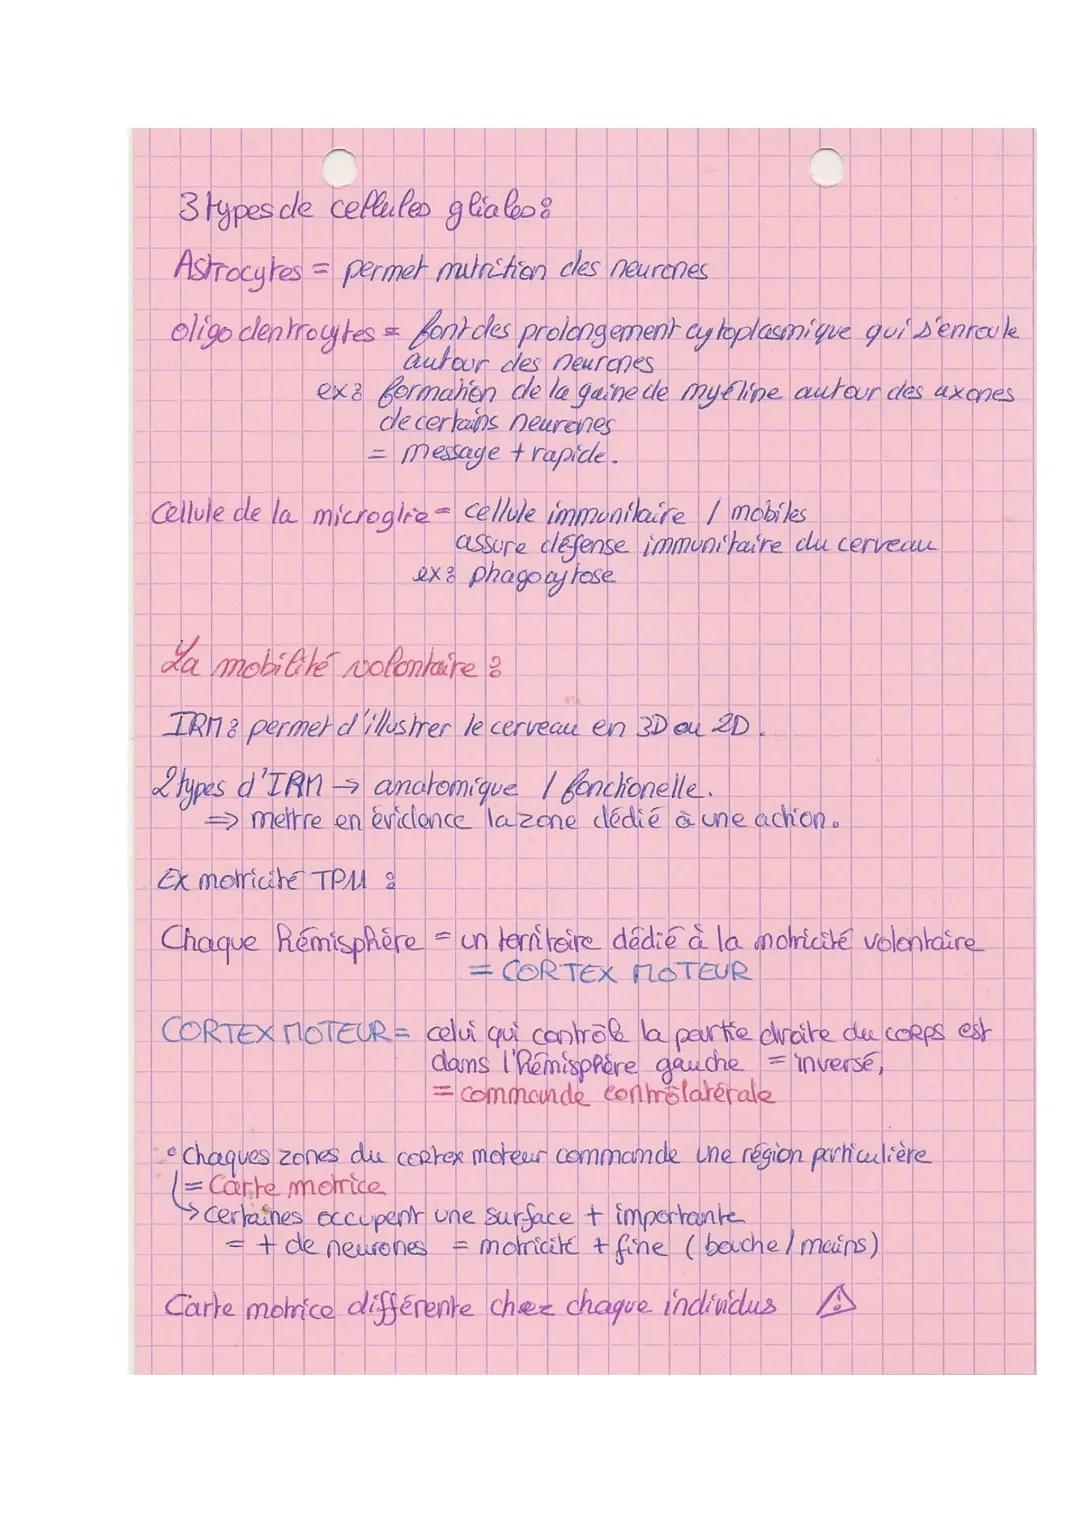 3 types de cellules gliales :
Astrocytes = permet nutrition des neurones
oligodentrocytes = font des prolongement cytoplasmique qui s'enroule
autour des neurones
ex : formation de la gaine de myéline autour des axones
de certains neurones
= message + rapide.
Cellule de la microglie = cellule immunitaire / mobiles
assure défense immunitaire du cerveau
ex : phagocytose
La mobilité volontaire :
IRM : permet d'illustrer le cerveau en 3D ou 2D.
2 types d'IRM → anatomique / fonctionelle.
⇒ mettre en évidence la zone dédié à une action.
Ex motricité TPM :
Chaque hémisphère = un territoire dédié à la motricité volontaire
= CORTEX MOTEUR
CORTEX MOTEUR = celui qui contrôle la partie droite du corps est
dans l'hémisphère gauche = inversé,
= commande contrôlatérale
• Chaques zones du cortex moteur commande une région particulière
= Carte motrice
↳ certaines occupent une surface + importante
= + de neurones = motricité + fine (bouche / mains)
Carte motrice différente chez chaque individus ⚠